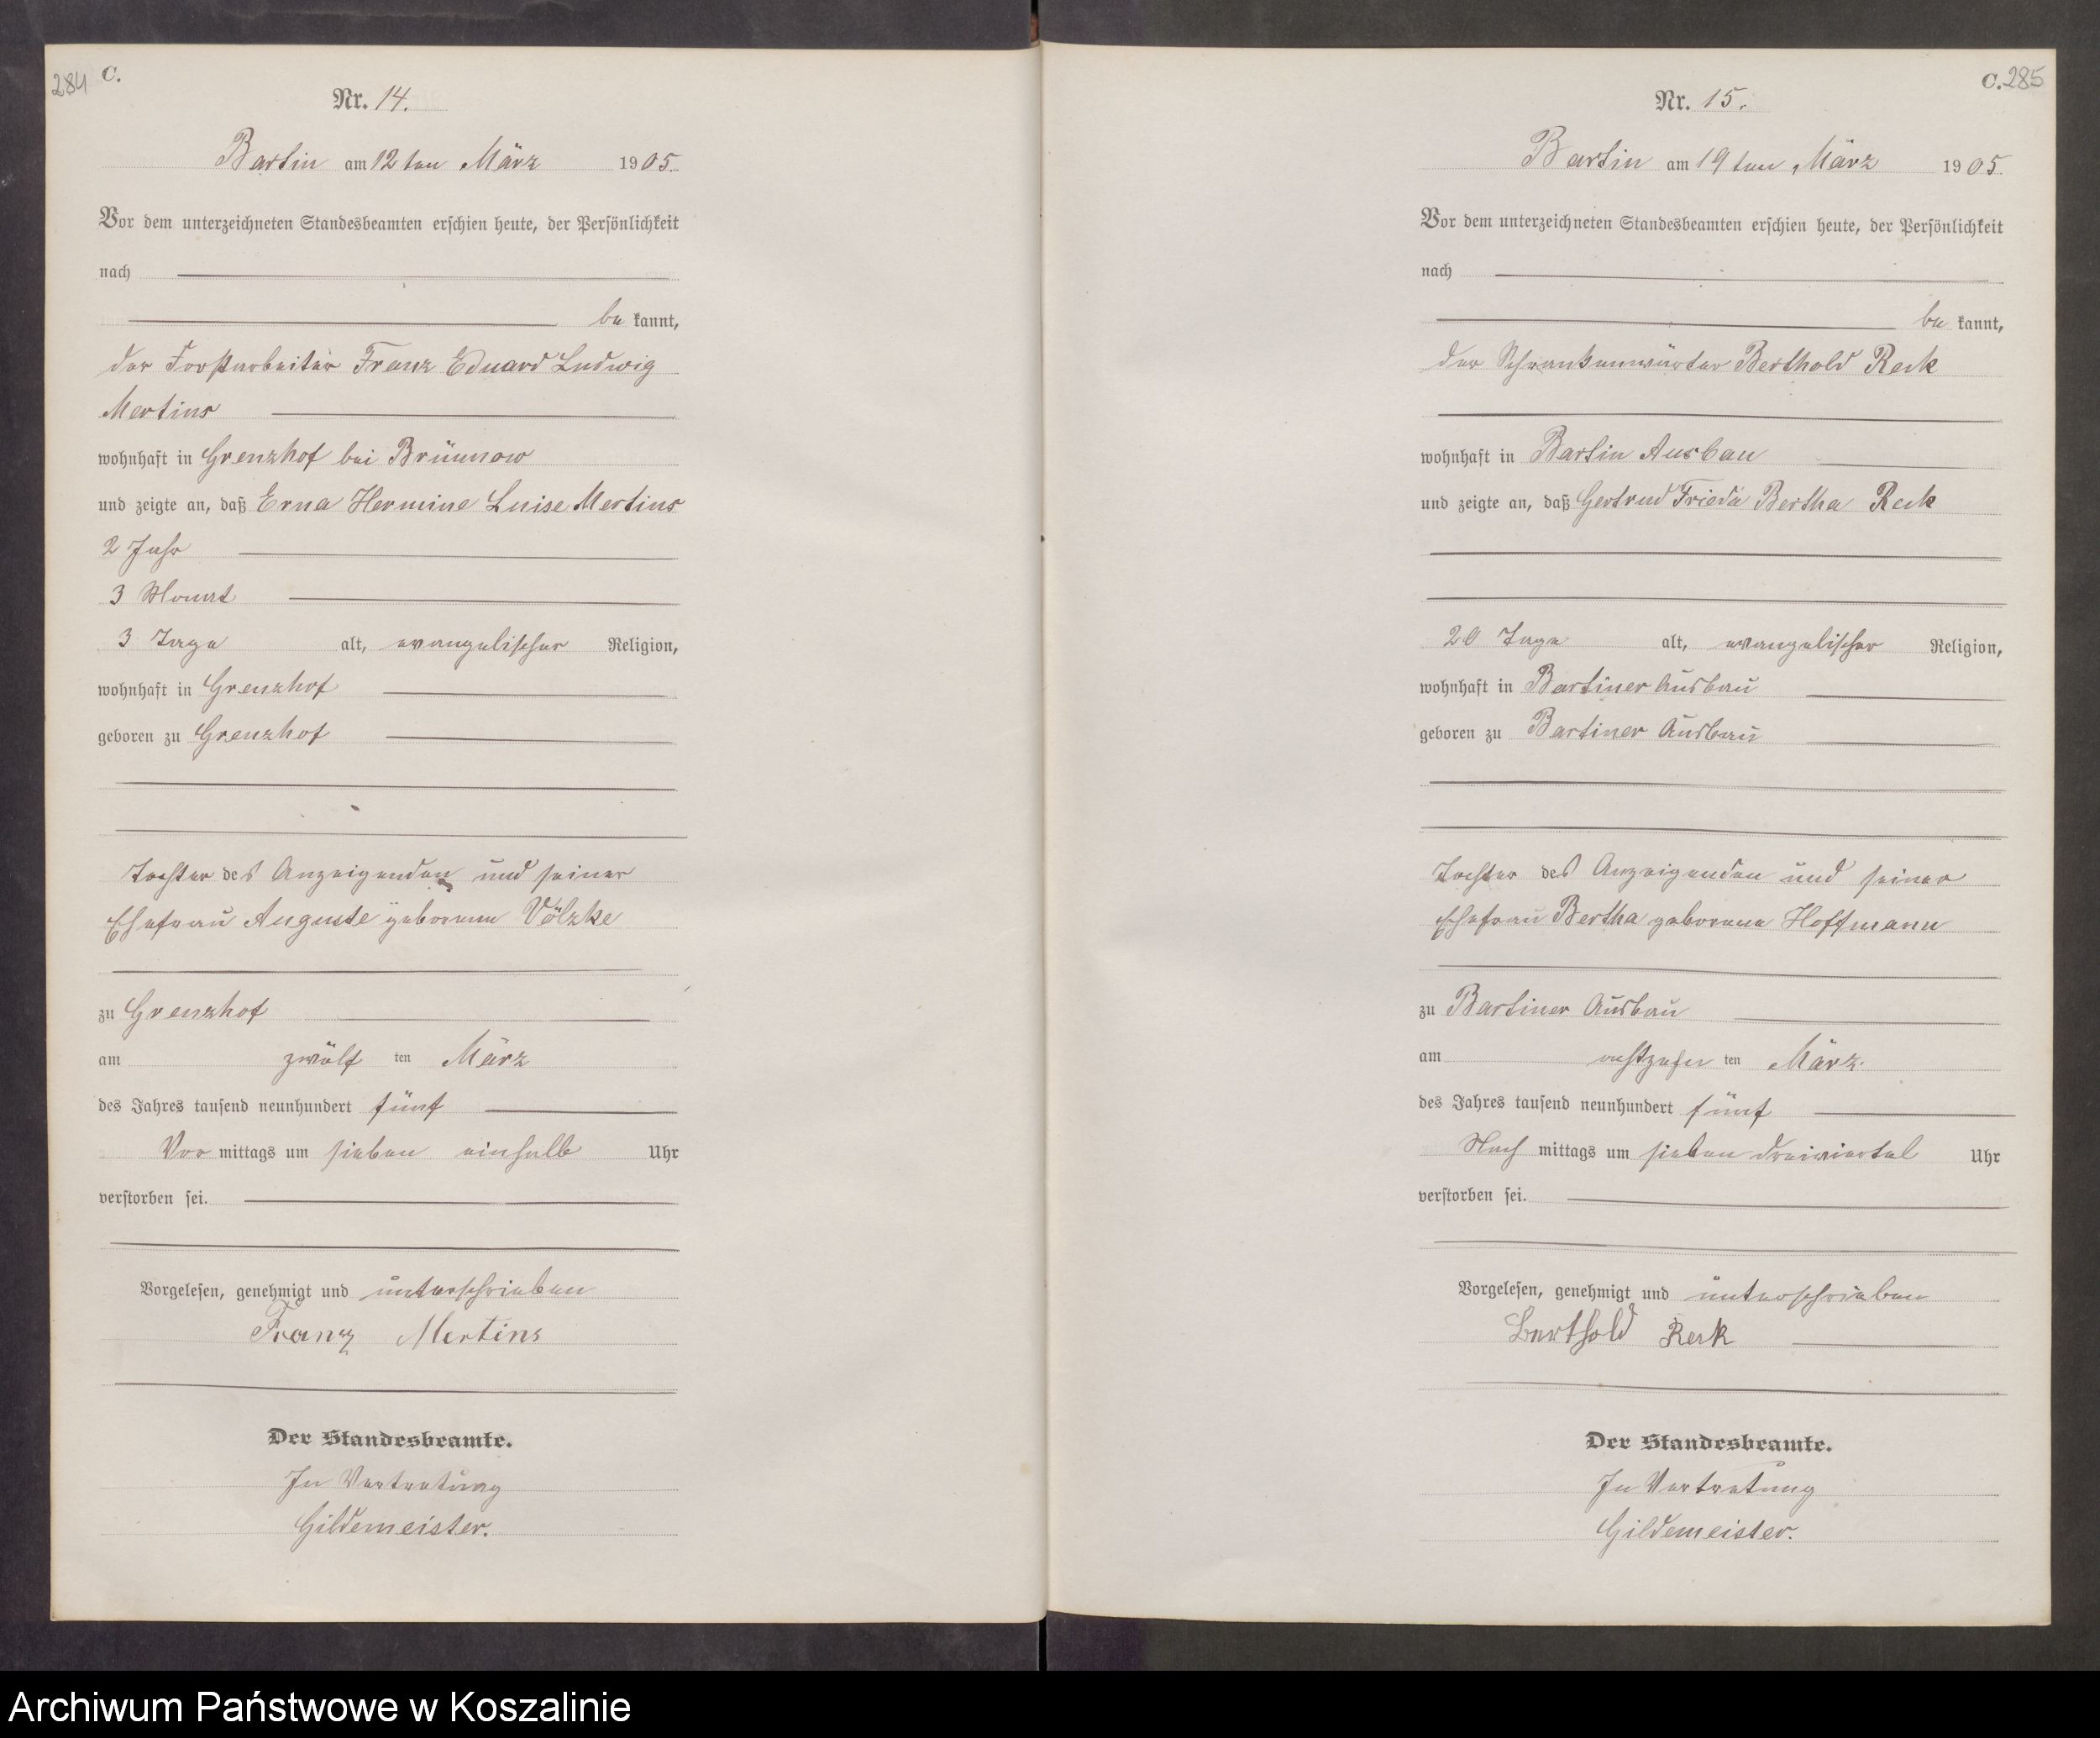 284 C.
Nr. 14.
Bartin am 12ten März 1905.
Vor dem unterzeichneten Standesbeamten erschien heute, der Persönlichkeit
nach
be kannt,
der Forstarbeiter Franz Eduard Ludwig
Mertins
wohnhaft in Grenzhof bei Brünnow
und zeigte an, daß Erna Hermine Luise Mertins
2 Jahr
3 Monat
3 Tage alt, evangelischer Religion,
wohnhaft in Grenzhof
geboren zu Grenzhof
Tochter des Anzeigenden und seiner
Ehefrau Auguste geborene Völzke
zu Grenzhof
am zwölf ten März
des Jahres tausend neunhundert fünf
Vor mittags um sieben einhalb Uhr
verstorben sei.
Vorgelesen, genehmigt und unterschrieben
Franz Mertins
Der Standesbeamte.
In Vertretung
Gildemeister.
C. 285
Nr. 15.
Bartin am 19ten März 1905.
Vor dem unterzeichneten Standesbeamten erschien heute, der Persönlichkeit
nach
be kannt,
der Schrankenwärter Berthold Reck
wohnhaft in Bartin Ausbau
und zeigte an, daß Gertrud Frieda Bertha Reck
20 Tage alt, evangelischer Religion,
wohnhaft in Bartiner Ausbau
geboren zu Bartiner Ausbau
Tochter des Anzeigenden und seiner
Ehefrau Bertha geborene Hoffmann
zu Bartiner Ausbau
am achtzehn ten März.
des Jahres tausend neunhundert fünf
Nach mittags um sieben dreiviertel Uhr
verstorben sei.
Vorgelesen, genehmigt und unterschrieben
Berthold Reck
Der Standesbeamte.
In Vertretung
Gildemeister.
Archiwum Państwowe w Koszalinie